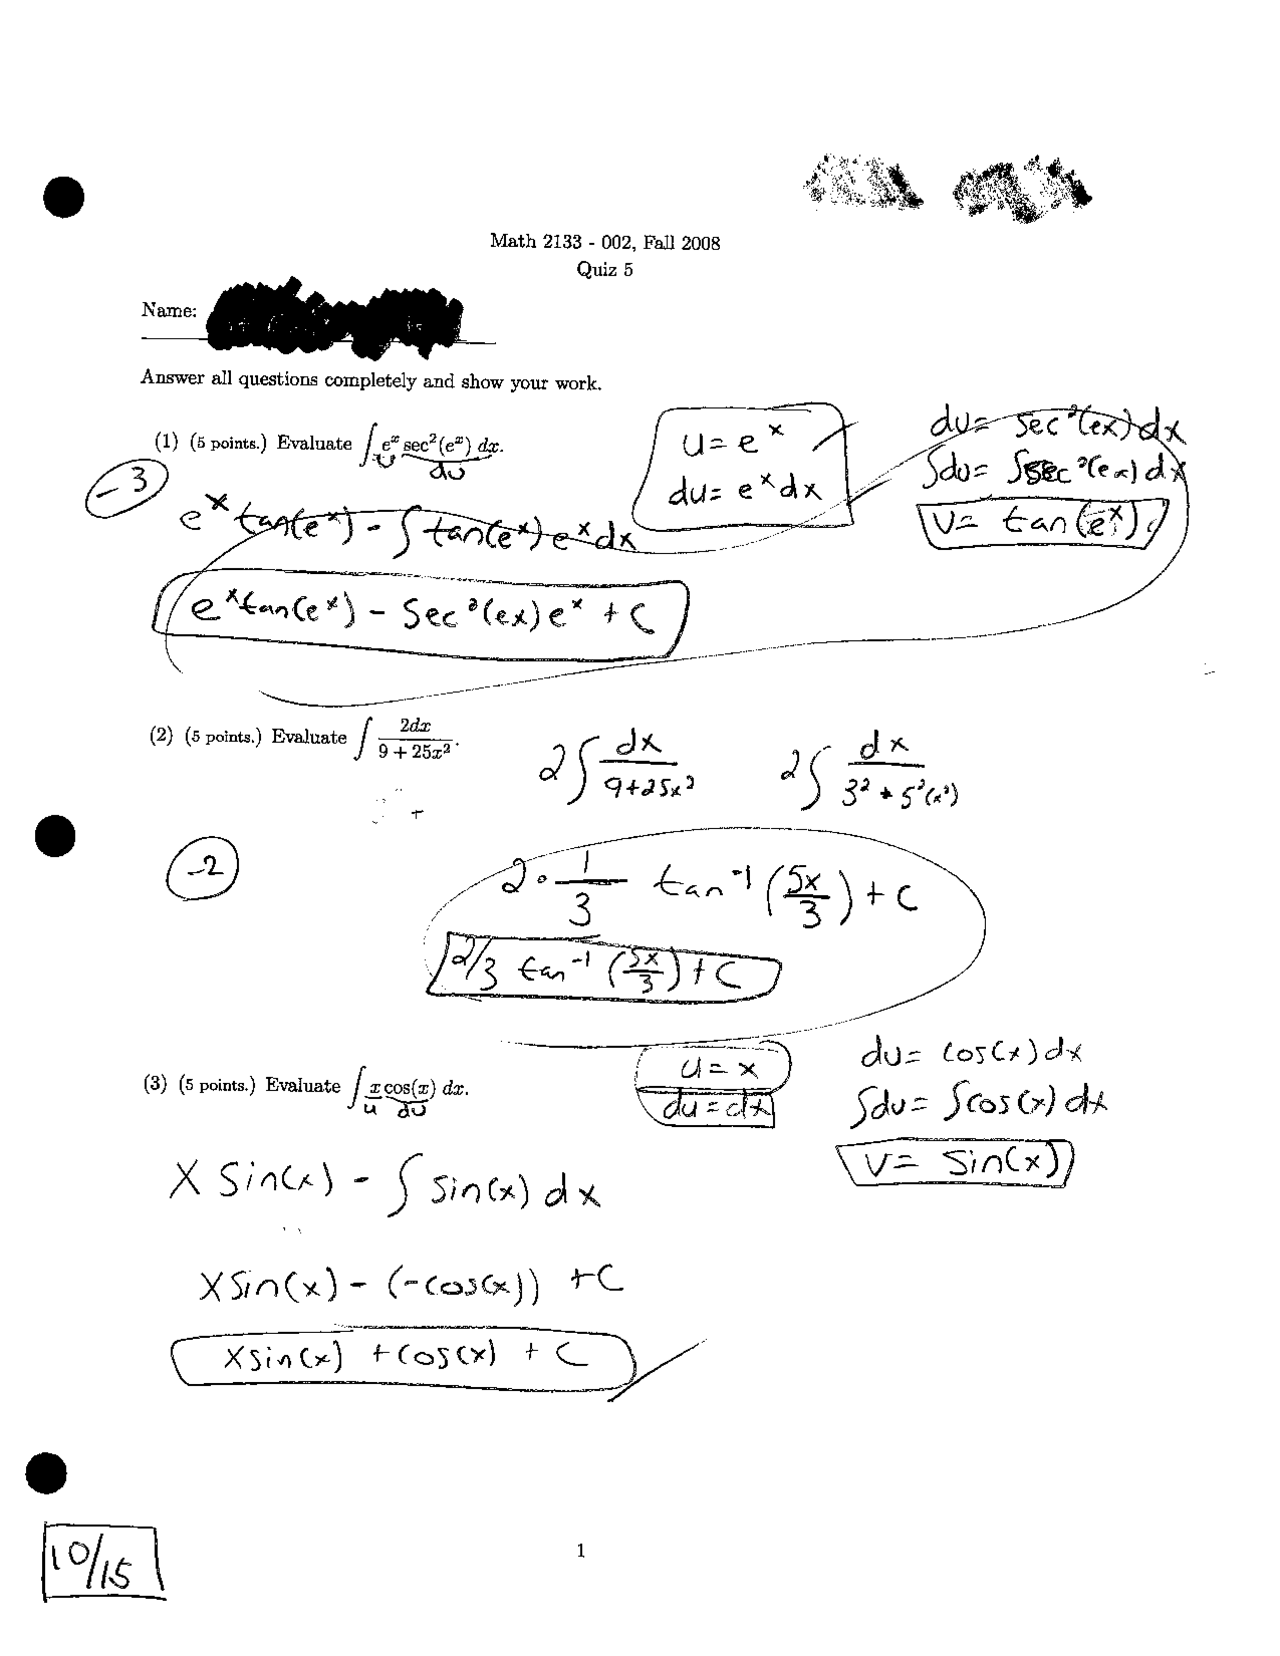 Math 2133 - 002, Fall 2008
Quiz 5
Name:
Answer all questions completely and show your work.
(1) (5 points.) Evaluate ∫ eˣ sec²(eˣ) dx.
u dv
-3
u = eˣ
du = eˣ dx
dv = sec²(ex) dx
∫dv = ∫sec²(ex) dx
v = tan(eˣ)
eˣ tan(eˣ) - ∫ tan(eˣ) eˣ dx
eˣ tan(eˣ) - sec²(ex) eˣ + C
(2) (5 points.) Evaluate ∫ 2dx / (9 + 25x²).
2∫ dx / (9+25x²) 2∫ dx / (3² + 5²(x²))
-2
2 · 1/3 tan⁻¹ (5x/3) + C
2/3 tan⁻¹ (5x/3) + C
(3) (5 points.) Evaluate ∫ x cos(x) dx.
u dv
u = x
du = dx
dv = cos(x) dx
∫dv = ∫cos(x) dx
v = sin(x)
x sin(x) - ∫ sin(x) dx
x sin(x) - (-cos(x)) + C
x sin(x) + cos(x) + C
10/15
1